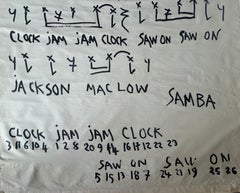 CLOCK JAM JAM CLOCK SAW ON SAW ON
JACKSON MAC LOW
SAMBA
CLOCK JAM JAM CLOCK
3 11 16 10 4 1 2 8 20 9 14 16 17 12 22 23
SAW ON SAW ON
5 15 13 18 7 24 21 19 25 26